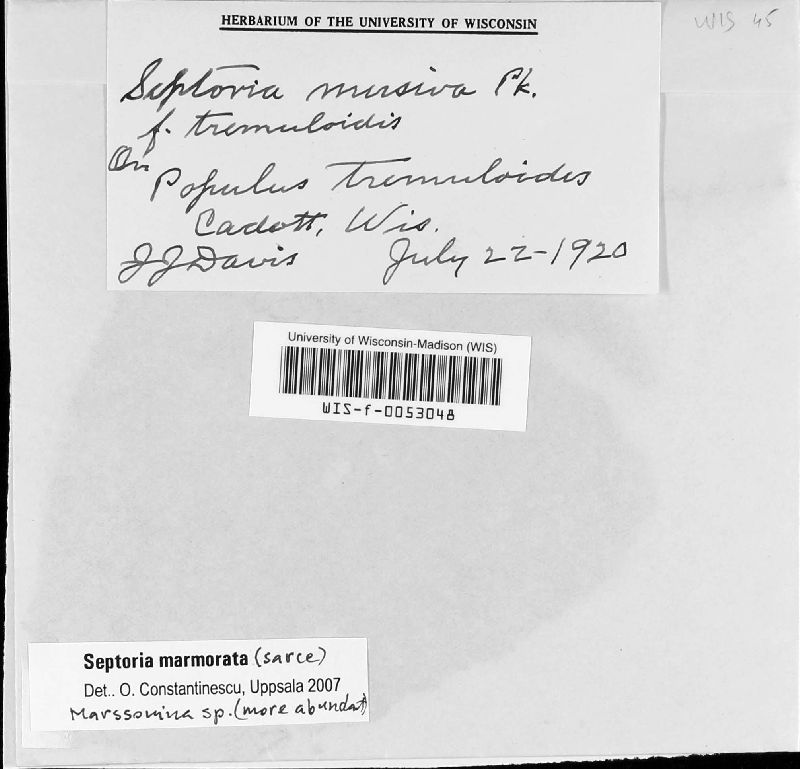 HERBARIUM OF THE UNIVERSITY OF WISCONSIN
WIS 45
Septoria musiva Pk.
f. tremuloidis
On
Populus tremuloides
Cadott, Wis.
JJ Davis July 22-1920
University of Wisconsin-Madison (WIS)
WIS-f-0053048
Septoria marmorata (sarce)
Det.. O. Constantinescu, Uppsala 2007
Marssonina sp. (more abundat)